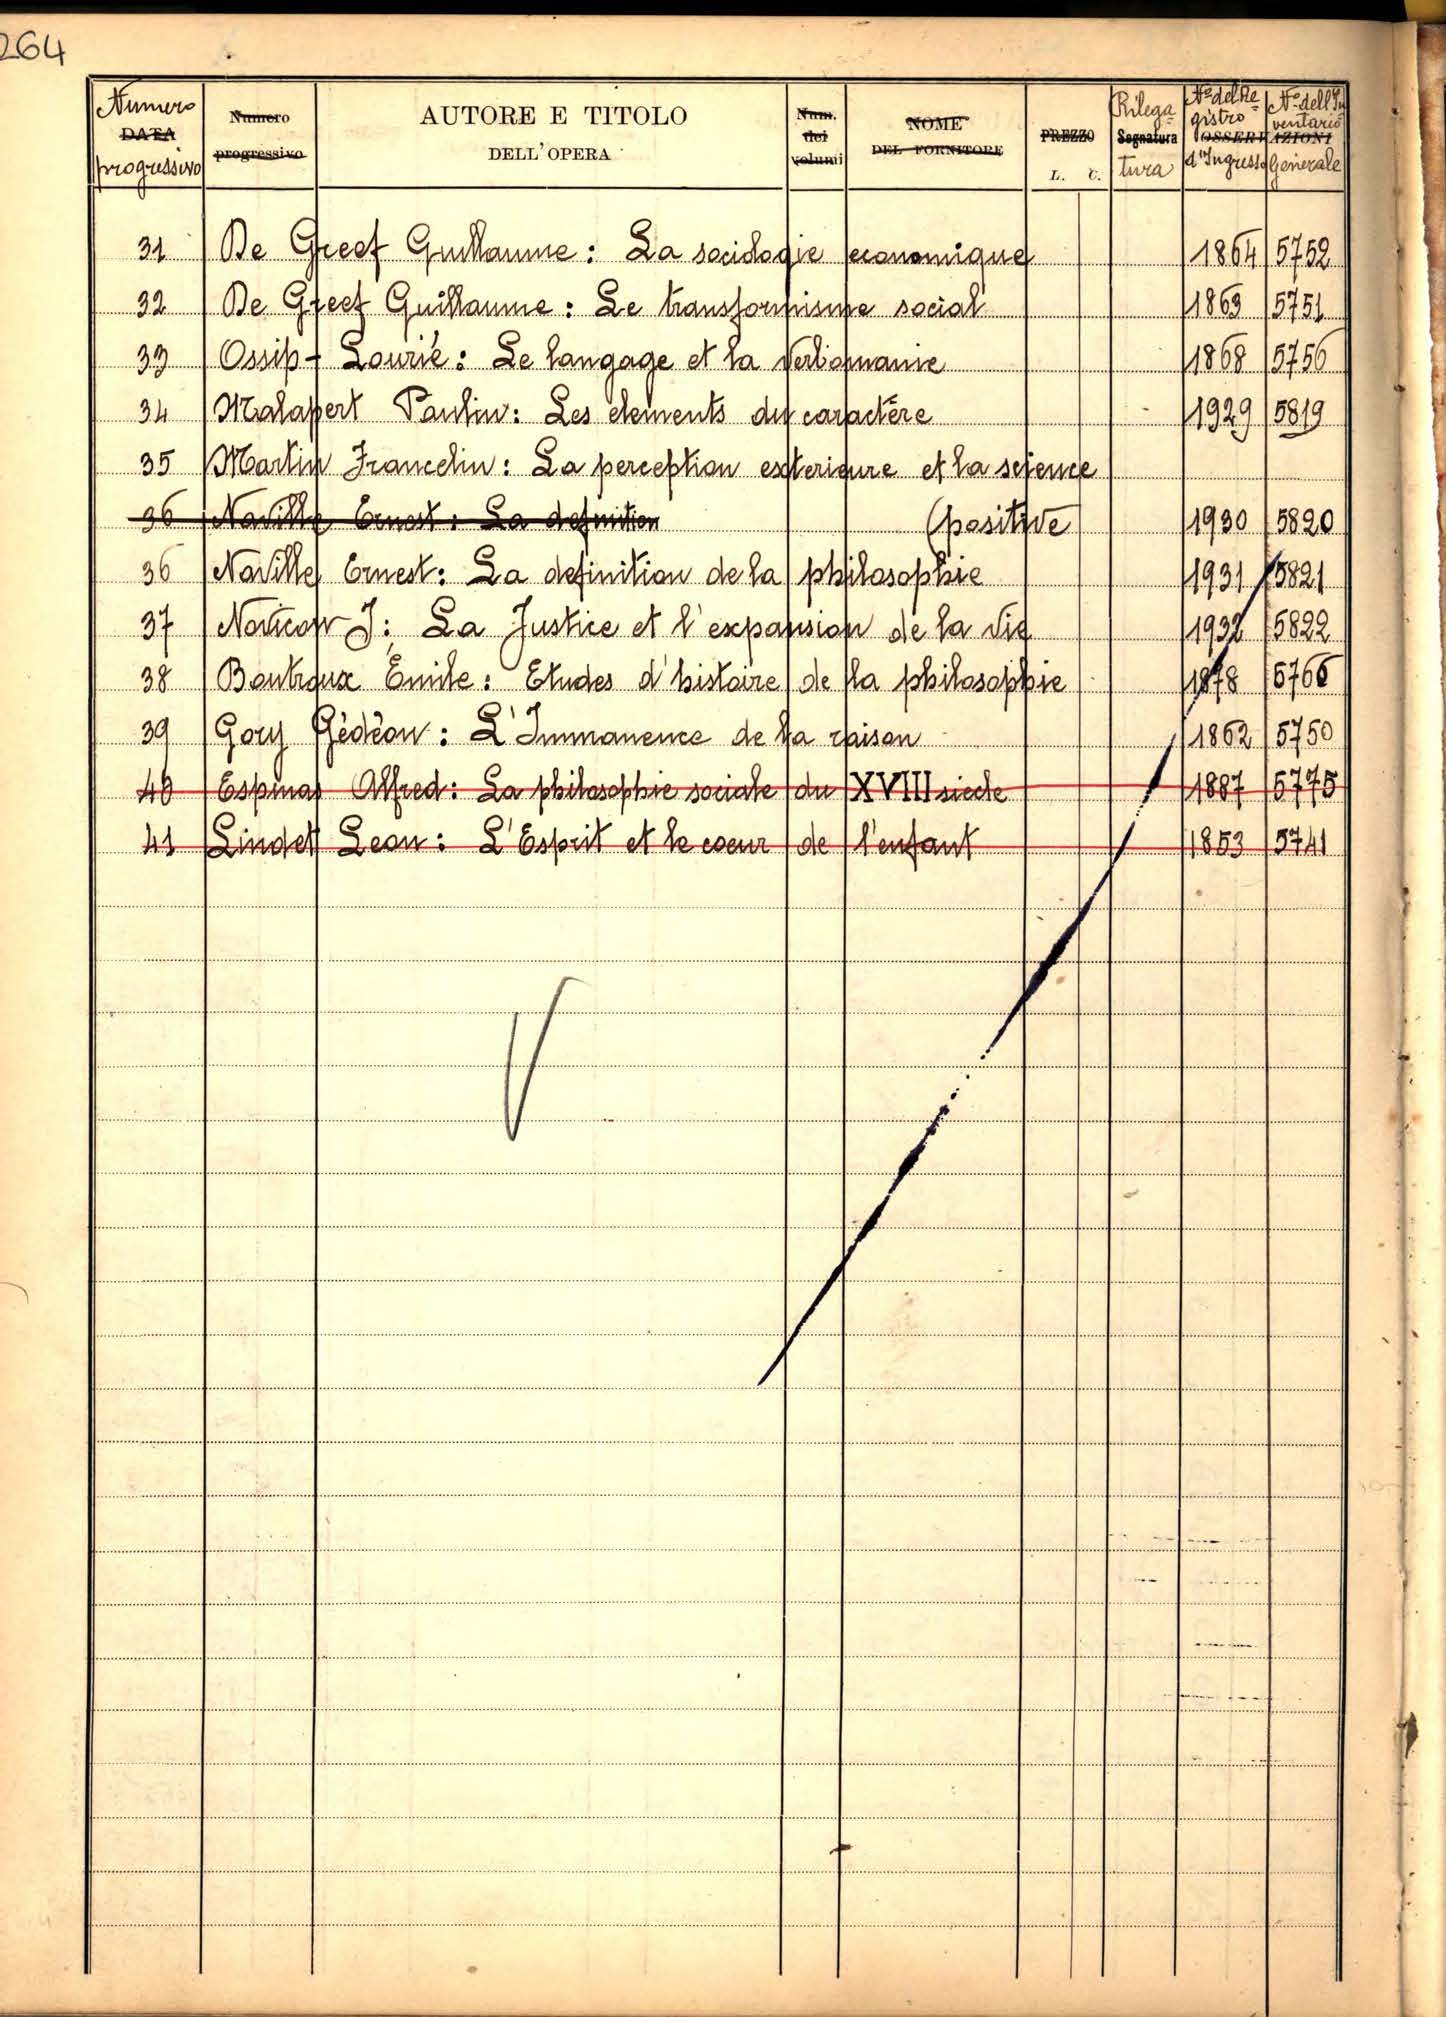 264
Numero DATA progressivo | Numero progressivo | AUTORE E TITOLO DELL'OPERA | Num. dei volumi | NOME DEL FORNITORE | PREZZO L. C. | Rilega= Segnatura tura | N.º del Re= gistro OSSERVAZIONI d'Ingresso | N.º dell'In ventario Generale
31 De Greef Guillaume : La sociologie economique 1864 5752
32 De Greef Guillaume : Le transformisme social 1863 5751
33 Ossip - Lourié : Le langage et la verbomanie 1868 5756
34 Malapert Paulin : Les elements du caractére 1929 5819
35 Martin Francelin : La perception exterieure et la science
36 Naville Ernest : La definition (positive 1930 5820
36 Naville Ernest : La definition de la philosophie 1931 5821
37 Novicow J : La Justice et l'expansion de la vie 1932 5822
38 Boutroux Émile : Etudes d'histoire de la philosophie 1878 5766
39 Gory Gédéon : L'Immanence de la raison 1862 5750
40 Espinas Alfred : La philosophie sociale du XVIII siecle 1887 5775
41 Lindet Leon : L'Esprit et le coeur de l'enfant 1853 5741